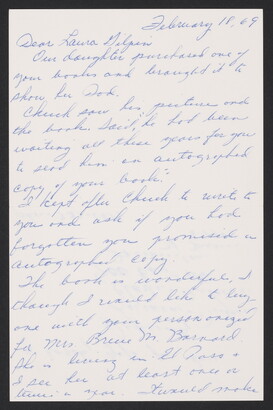 February 18, 69
Dear Laura Gilpin
Our daughter purchased one of
your books and brought it to
show her Dad.
Chuck saw his picture and
the book. Said, he had been
waiting all these years for you
to send him "an autographed
copy of your book."
I kept after Chuck to write to
you and ask if you had
forgotten you promised an
autographed copy.
The book is wonderful, I
though I would like to buy
one with your
for Mrs M. Barnard.
She is living in El Paso +
I see her at least once or
twice a year. It would make